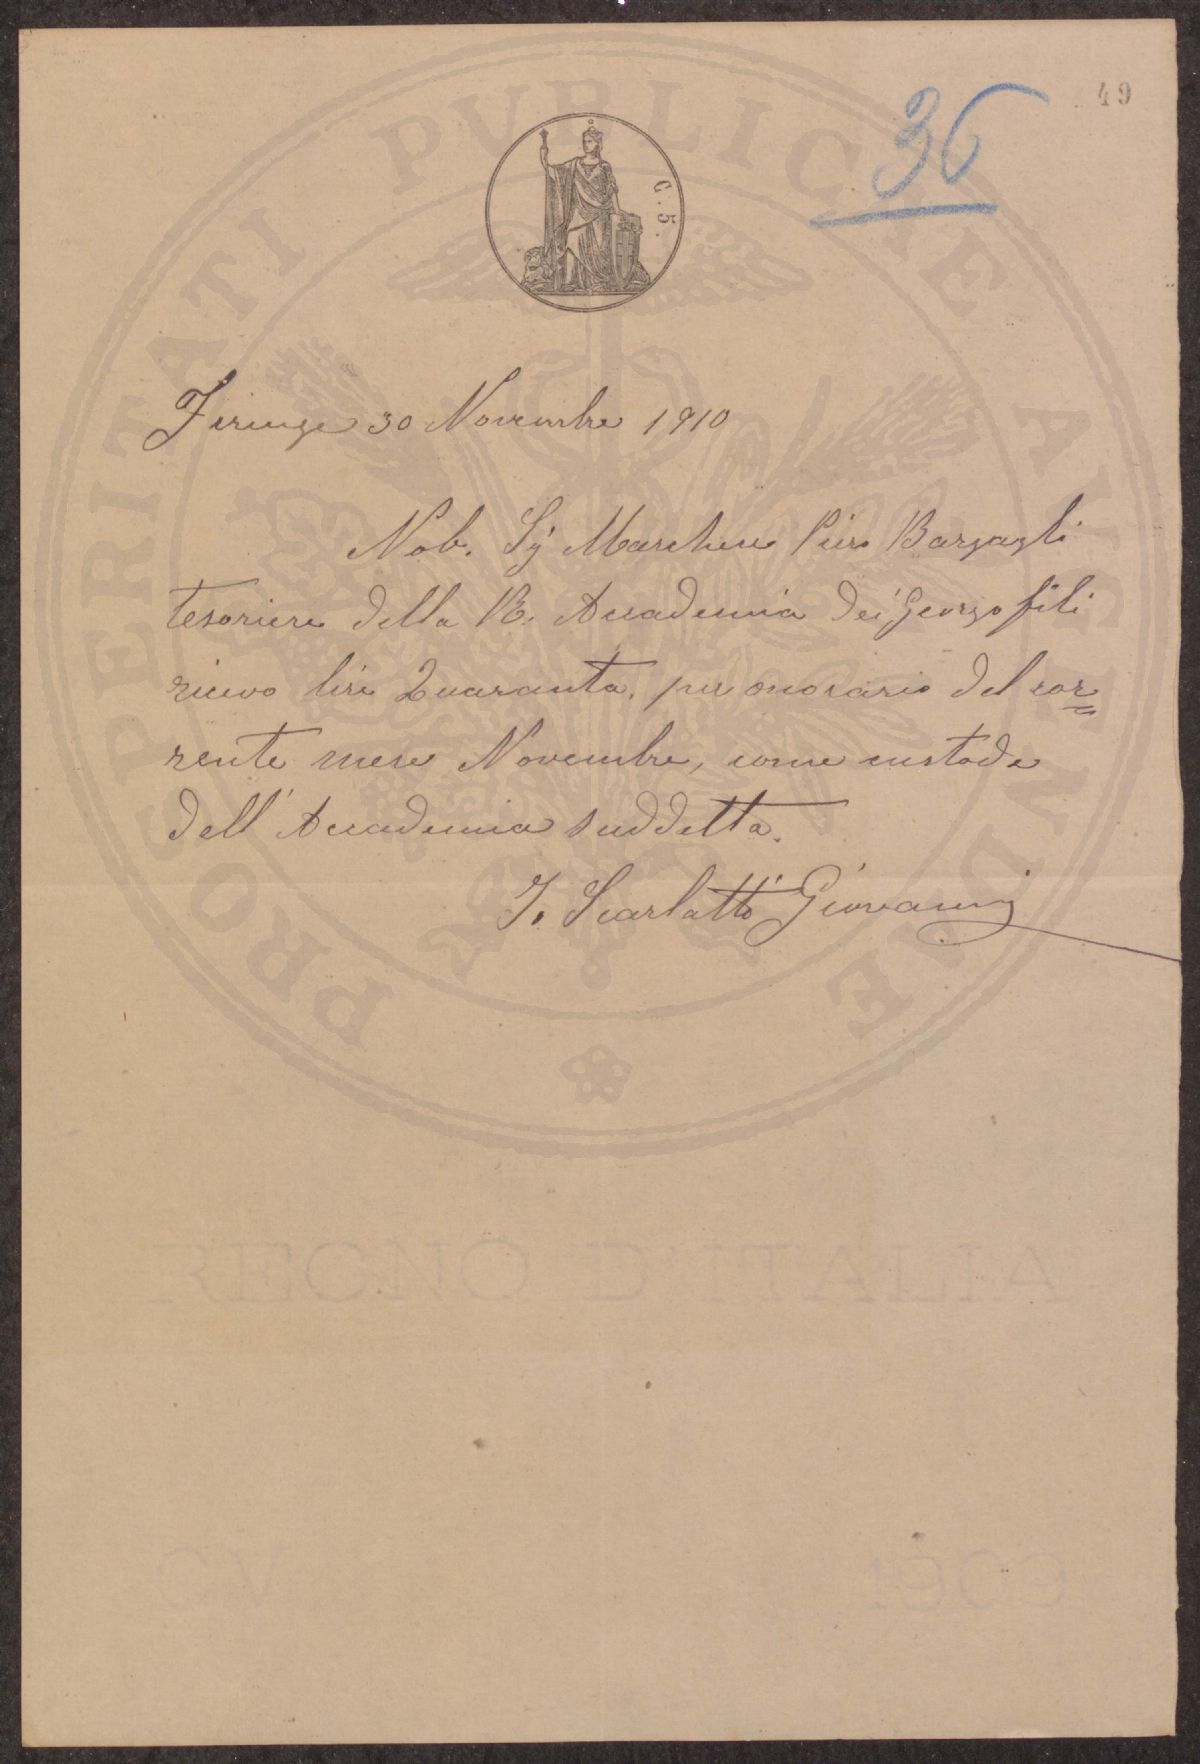 49
36
C. 5.
PROSPERITATI PVBLICAE AVGENDAE
Firenze 30 Novembre 1910
Nob. Sig Marchese Piero Bargagli
tesoriere della R. Accademia dei Georgofili
ricevo lire Quaranta, per onorario del cor=
rente mese Novembre, come custode
dell'Accademia suddetta.
Scarlatti Giovanni
REGNO D'ITALIA
CV 1909